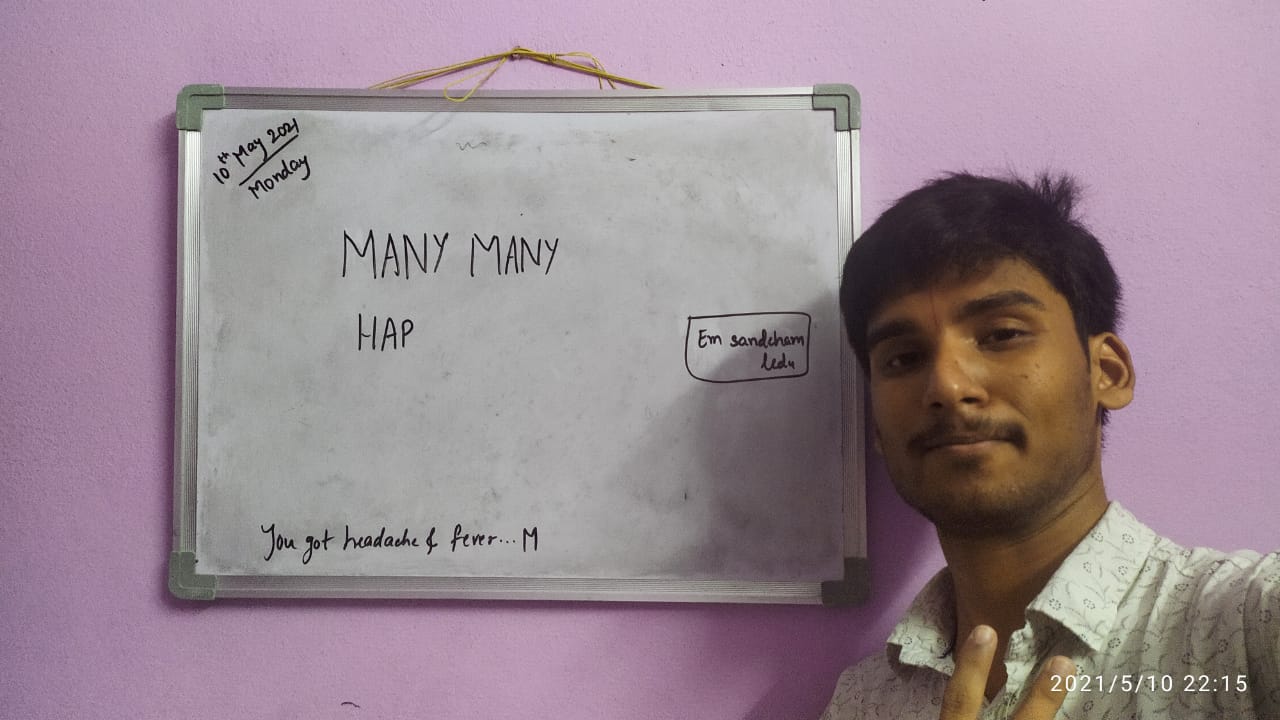 10th May 2021
Monday
MANY MANY
HAP
Em sandcham
ledu
You got headache & fever... M
2021/5/10 22:15